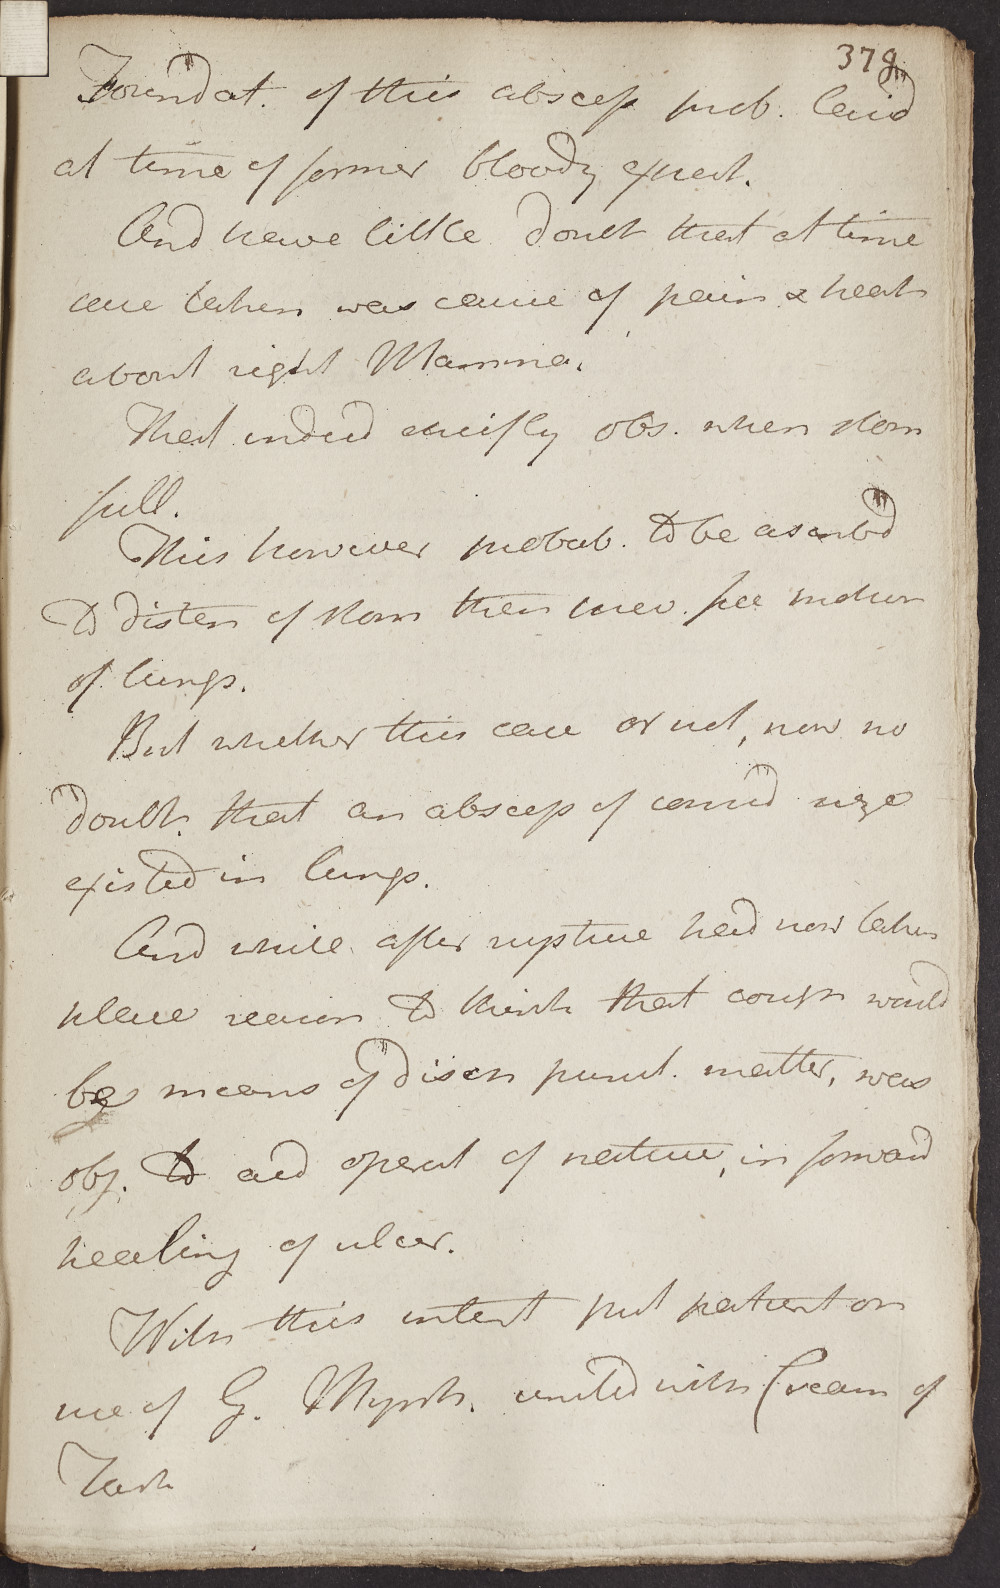 378
Foundat. of this abscess prob. laid
at time of former bloody expect.
And have little doubt that at time
case taken was cause of pain & heat
about right Mamma.
That indeed chiefly obs. when stom
full.
This however probab. to be ascribd
to disten of stom then prev. free motion
of lungs.
But whether this case or not, now no
doubt. that an abscess of consid size
existed in lungs.
And while after rupture had now taken
place reason to think that cough would
be means of disch purul. matter, was
obj. to aid operat of nature, in forward
healing of ulcer.
With this intent put patient on
use of G. Myrrh. united with Cream of
Tart